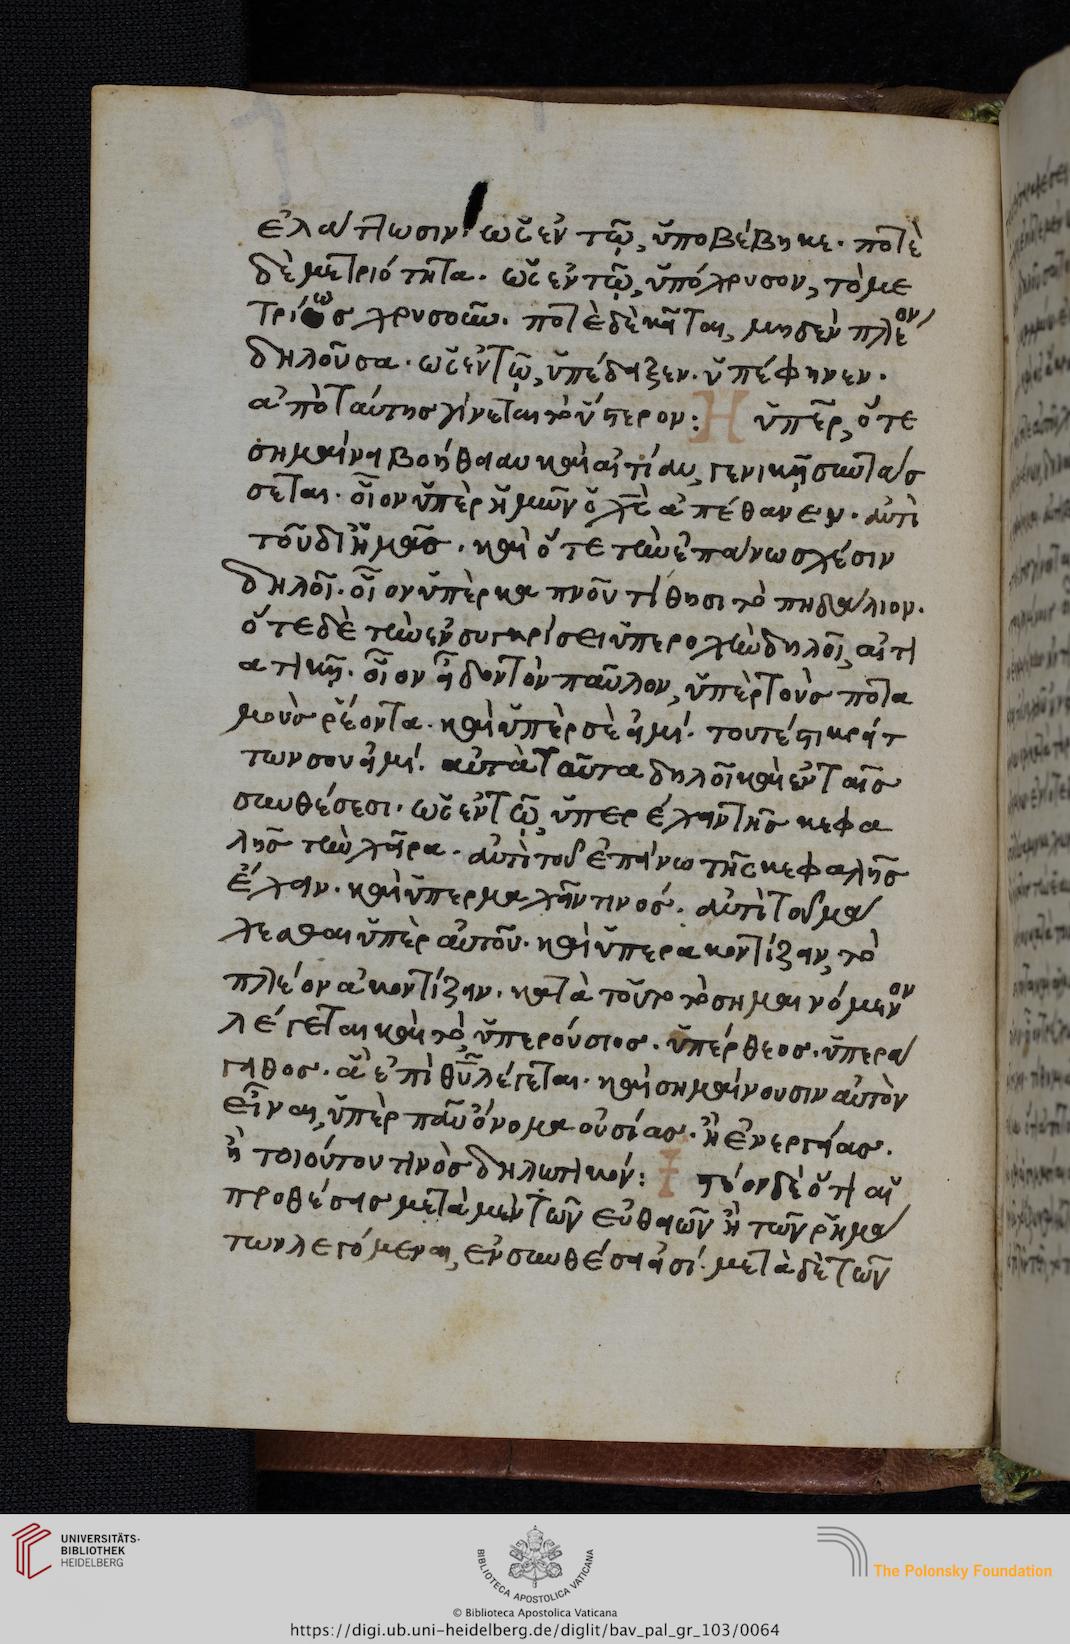 ἐλάττωσιν· ὡς ἐν τῷ, ὑποβέβηκε· ποτὲ
δὲ μετριότητα· ὡς ἐν τῷ, ὑπόχρυσον, τὸ με
τρίως χρυσοῦν· ποτὲ δὲ κεῖται, μηδὲν πλέον
δηλοῦσα· ὡς ἐν τῷ, ὑπέδειξεν· ὑπέφηνεν·
ἀπὸ ταύτης γίνεται τὸ ὕστερον: Ἡ ὑπὲρ, ὅτε
σημαίνει βοήθειαν καὶ αἰτίαν, γενικῇ συντάσ
σεται· οἷον ὑπὲρ ἡμῶν ὁ χς ἀπέθανεν· ἀντὶ
τοῦ δι ἡμᾶς· καὶ ὅτε τὴν ἐπάνω σχέσιν
δηλοῖ· οἷον ὑπὲρ καπνοῦ τίθησι τὸ πηδάλιον·
ὅτε δὲ τὴν ἐν συγκρίσει ὑπεροχὴν δηλοῖ, αἰτι
ατικῇ· οἷον εἶδον τὸν παῦλον, ὑπὲρ τοὺς ποτα
μοὺς ῥέοντα· καὶ ὑπὲρ σὲ εἰμί· τουτέστι κρείτ
των σου εἰμί· αὐτὰ ταῦτα δηλοῖ καὶ ἐν ταῖς
συνθέσεσι· ὡς ἐν τῷ, ὕπερ ἔχειν τῆς κεφα
λῆς τὴν χεῖρα· ἀντὶ τοῦ ἐπάνω τῆς κεφαλῆς
ἔχειν· καὶ ὑπερμαχεῖν τινος· ἀντὶ τοῦ μά
χεσθαι ὑπὲρ αὐτοῦ· καὶ ὑπερακοντίζειν, τὸ
πλέον ἀκοντίζειν· κατὰ τοῦτο τὸ σημαινόμενον
λέγεται καὶ τὸ, ὑπερούσιος· ὑπέρθεος· ὑπερά
γαθος· ἃ ἐπὶ θυ λέγεται· καὶ σημαίνουσιν αὐτὸν
εἶναι, ὑπὲρ πᾶν ὄνομα οὐσίας· ἢ ἐνεργείας·
ἢ τοιούτου τινὸς δηλωτικόν: Ἰστέον δὲ ὅτι αἱ
προθέσεις μετὰ μὲν τῶν εὐθειῶν ἢ τῶν ῥημά
των λεγόμεναι, ἐν συνθέσει εἰσί· μετὰ δὲ τῶν
UNIVERSITÄTS-
BIBLIOTHEK
HEIDELBERG
BIBLIOTECA APOSTOLICA VATICANA
The Polonsky Foundation
© Biblioteca Apostolica Vaticana
https://digi.ub.uni-heidelberg.de/diglit/bav_pal_gr_103/0064